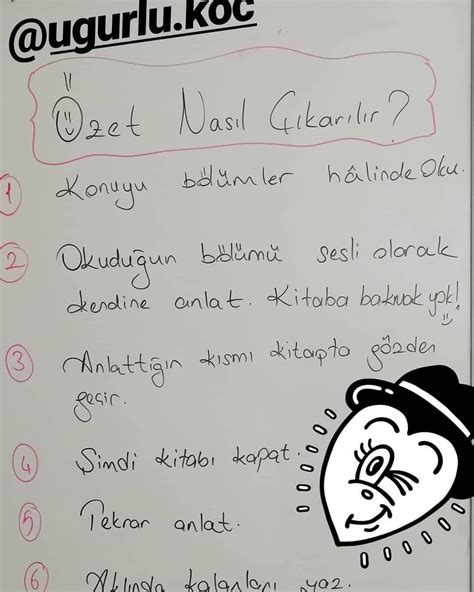 @ugurlu.koc
Özet Nasıl Çıkarılır?
1 Konuyu bölümler hâlinde Oku.
2 Okuduğun bölümü sesli olarak
kendine anlat. Kitaba bakmak yok!
3 Anlattığın kısmı kitapta gözden
geçir.
4 Şimdi kitabı kapat.
5 Tekrar anlat.
6 Aklında kalanları yaz.